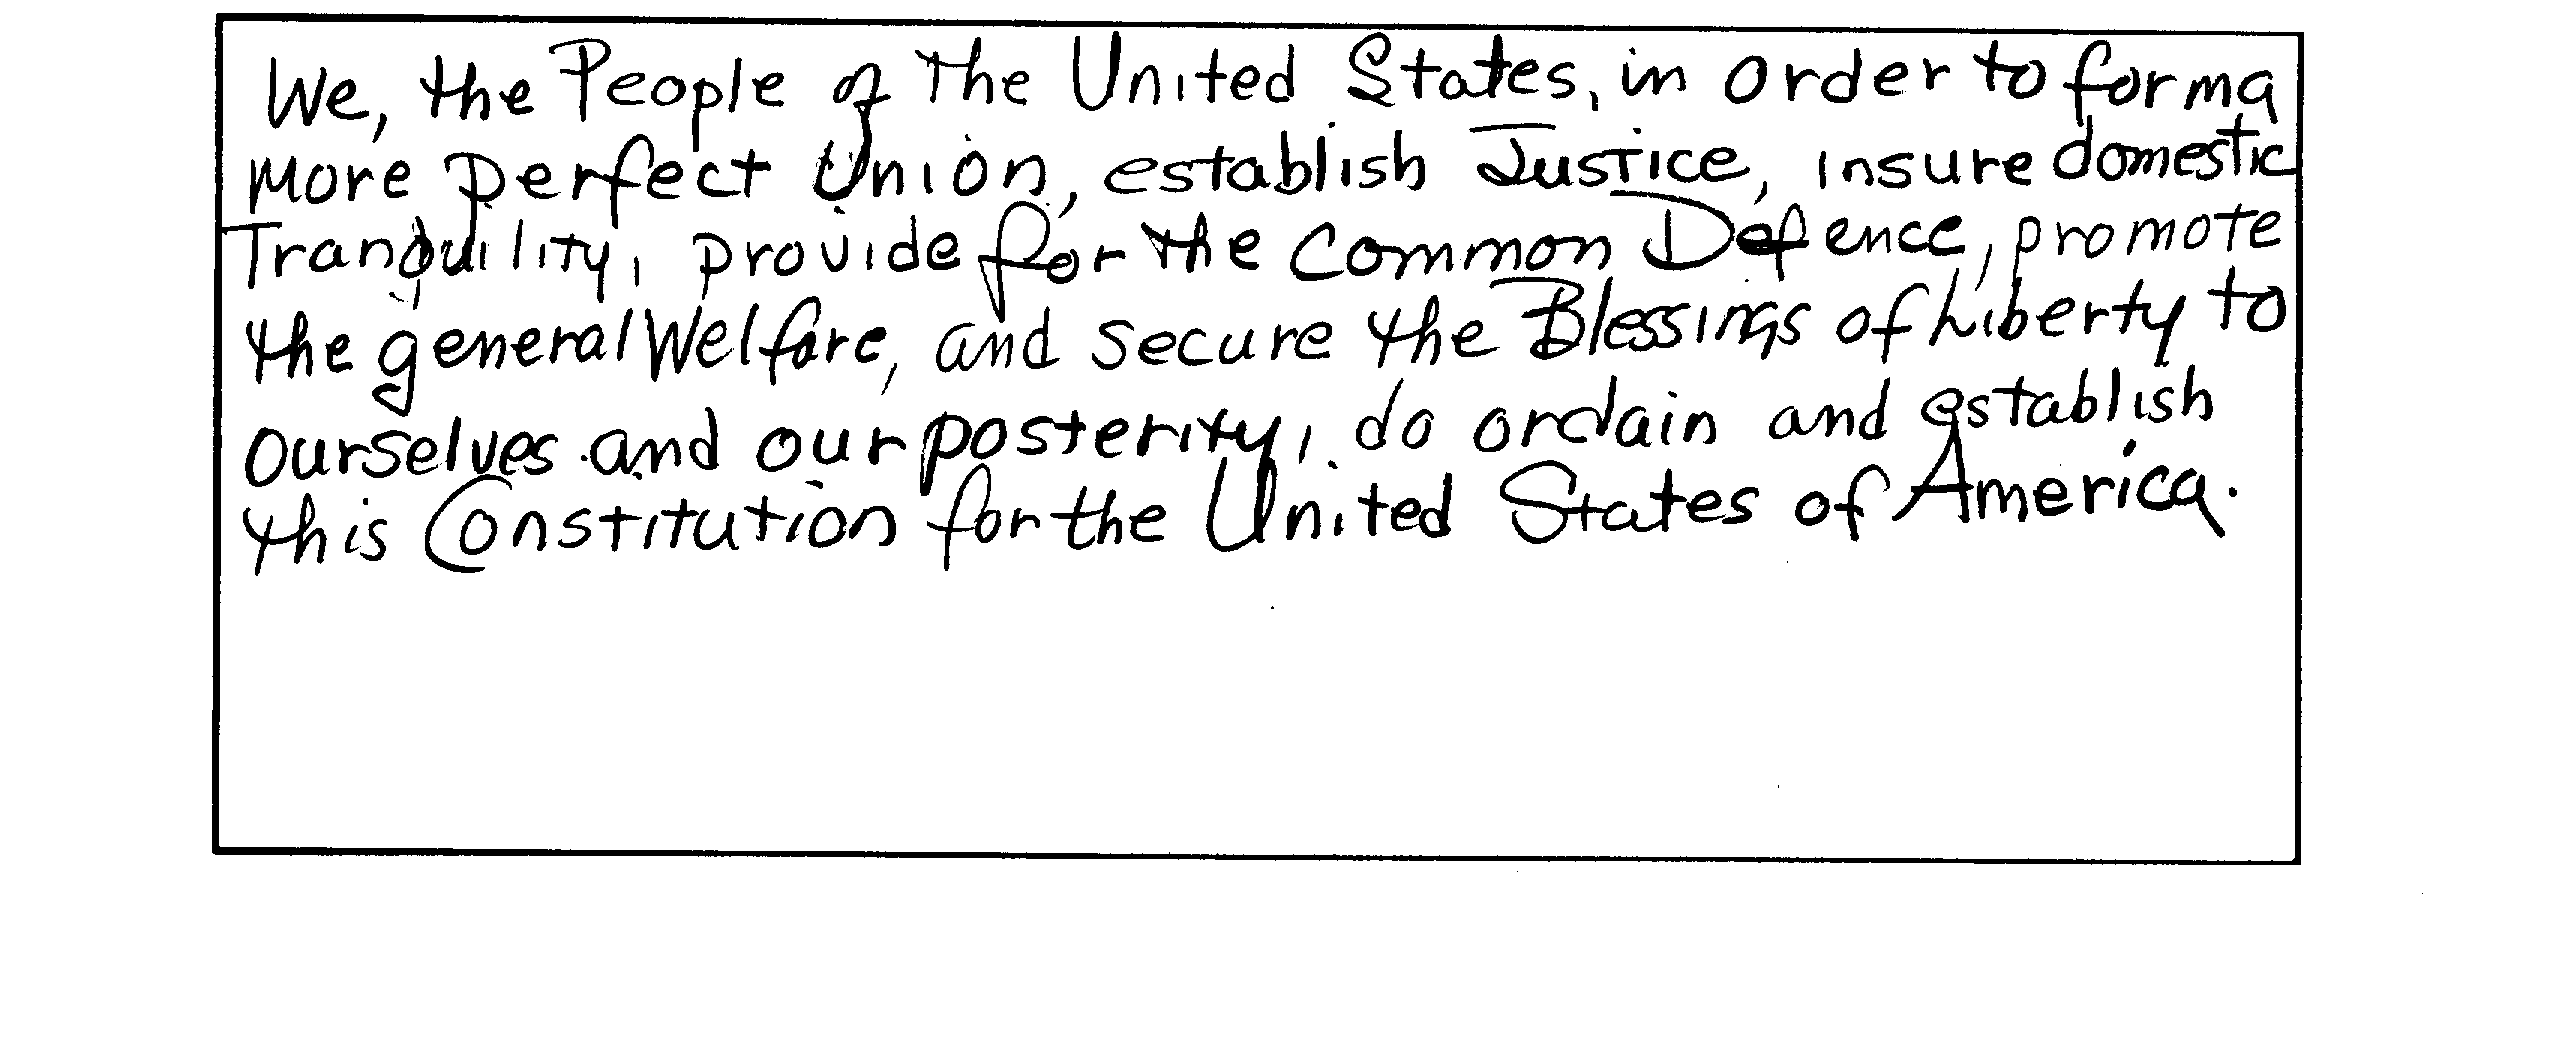 We, the People of the United States, in order to form a
more perfect Union, establish Justice, insure domestic
Tranquility, provide for the Common Defence, promote
the general Welfare, and secure the Blessings of Liberty to
ourselves and our posterity, do ordain and establish
this Constitution for the United States of America.